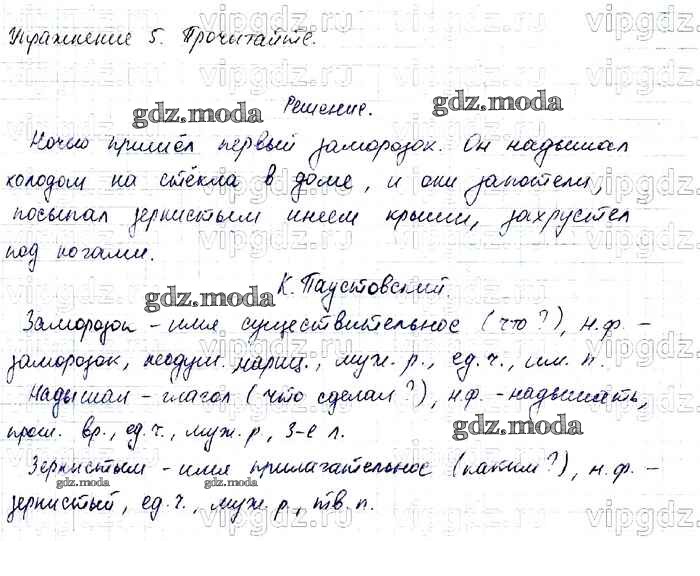 Упражнение 5. Прочитайте.
Решение.
Ночью пришёл первый заморозок. Он надышал
холодом на стёкла в доме, и они запотели,
посыпал зернистым инеем крыши, захрустел
под ногами.
К. Паустовский.
Заморозок - имя существительное (что?), н.ф. -
заморозок, неодуш. нариц., муж. р., ед. ч., им. п.
Надышал - глагол (что сделал?), н.ф. - надышать,
прош. вр., ед. ч., муж. р, 3-е л.
Зернистым - имя прилагательное (каким?), н.ф. -
зернистый, ед. ч., муж. р., тв. п.
gdz.moda
gdz.moda
gdz.moda
gdz.moda
gdz.moda
gdz.moda
gdz.moda
vipgdz.ru